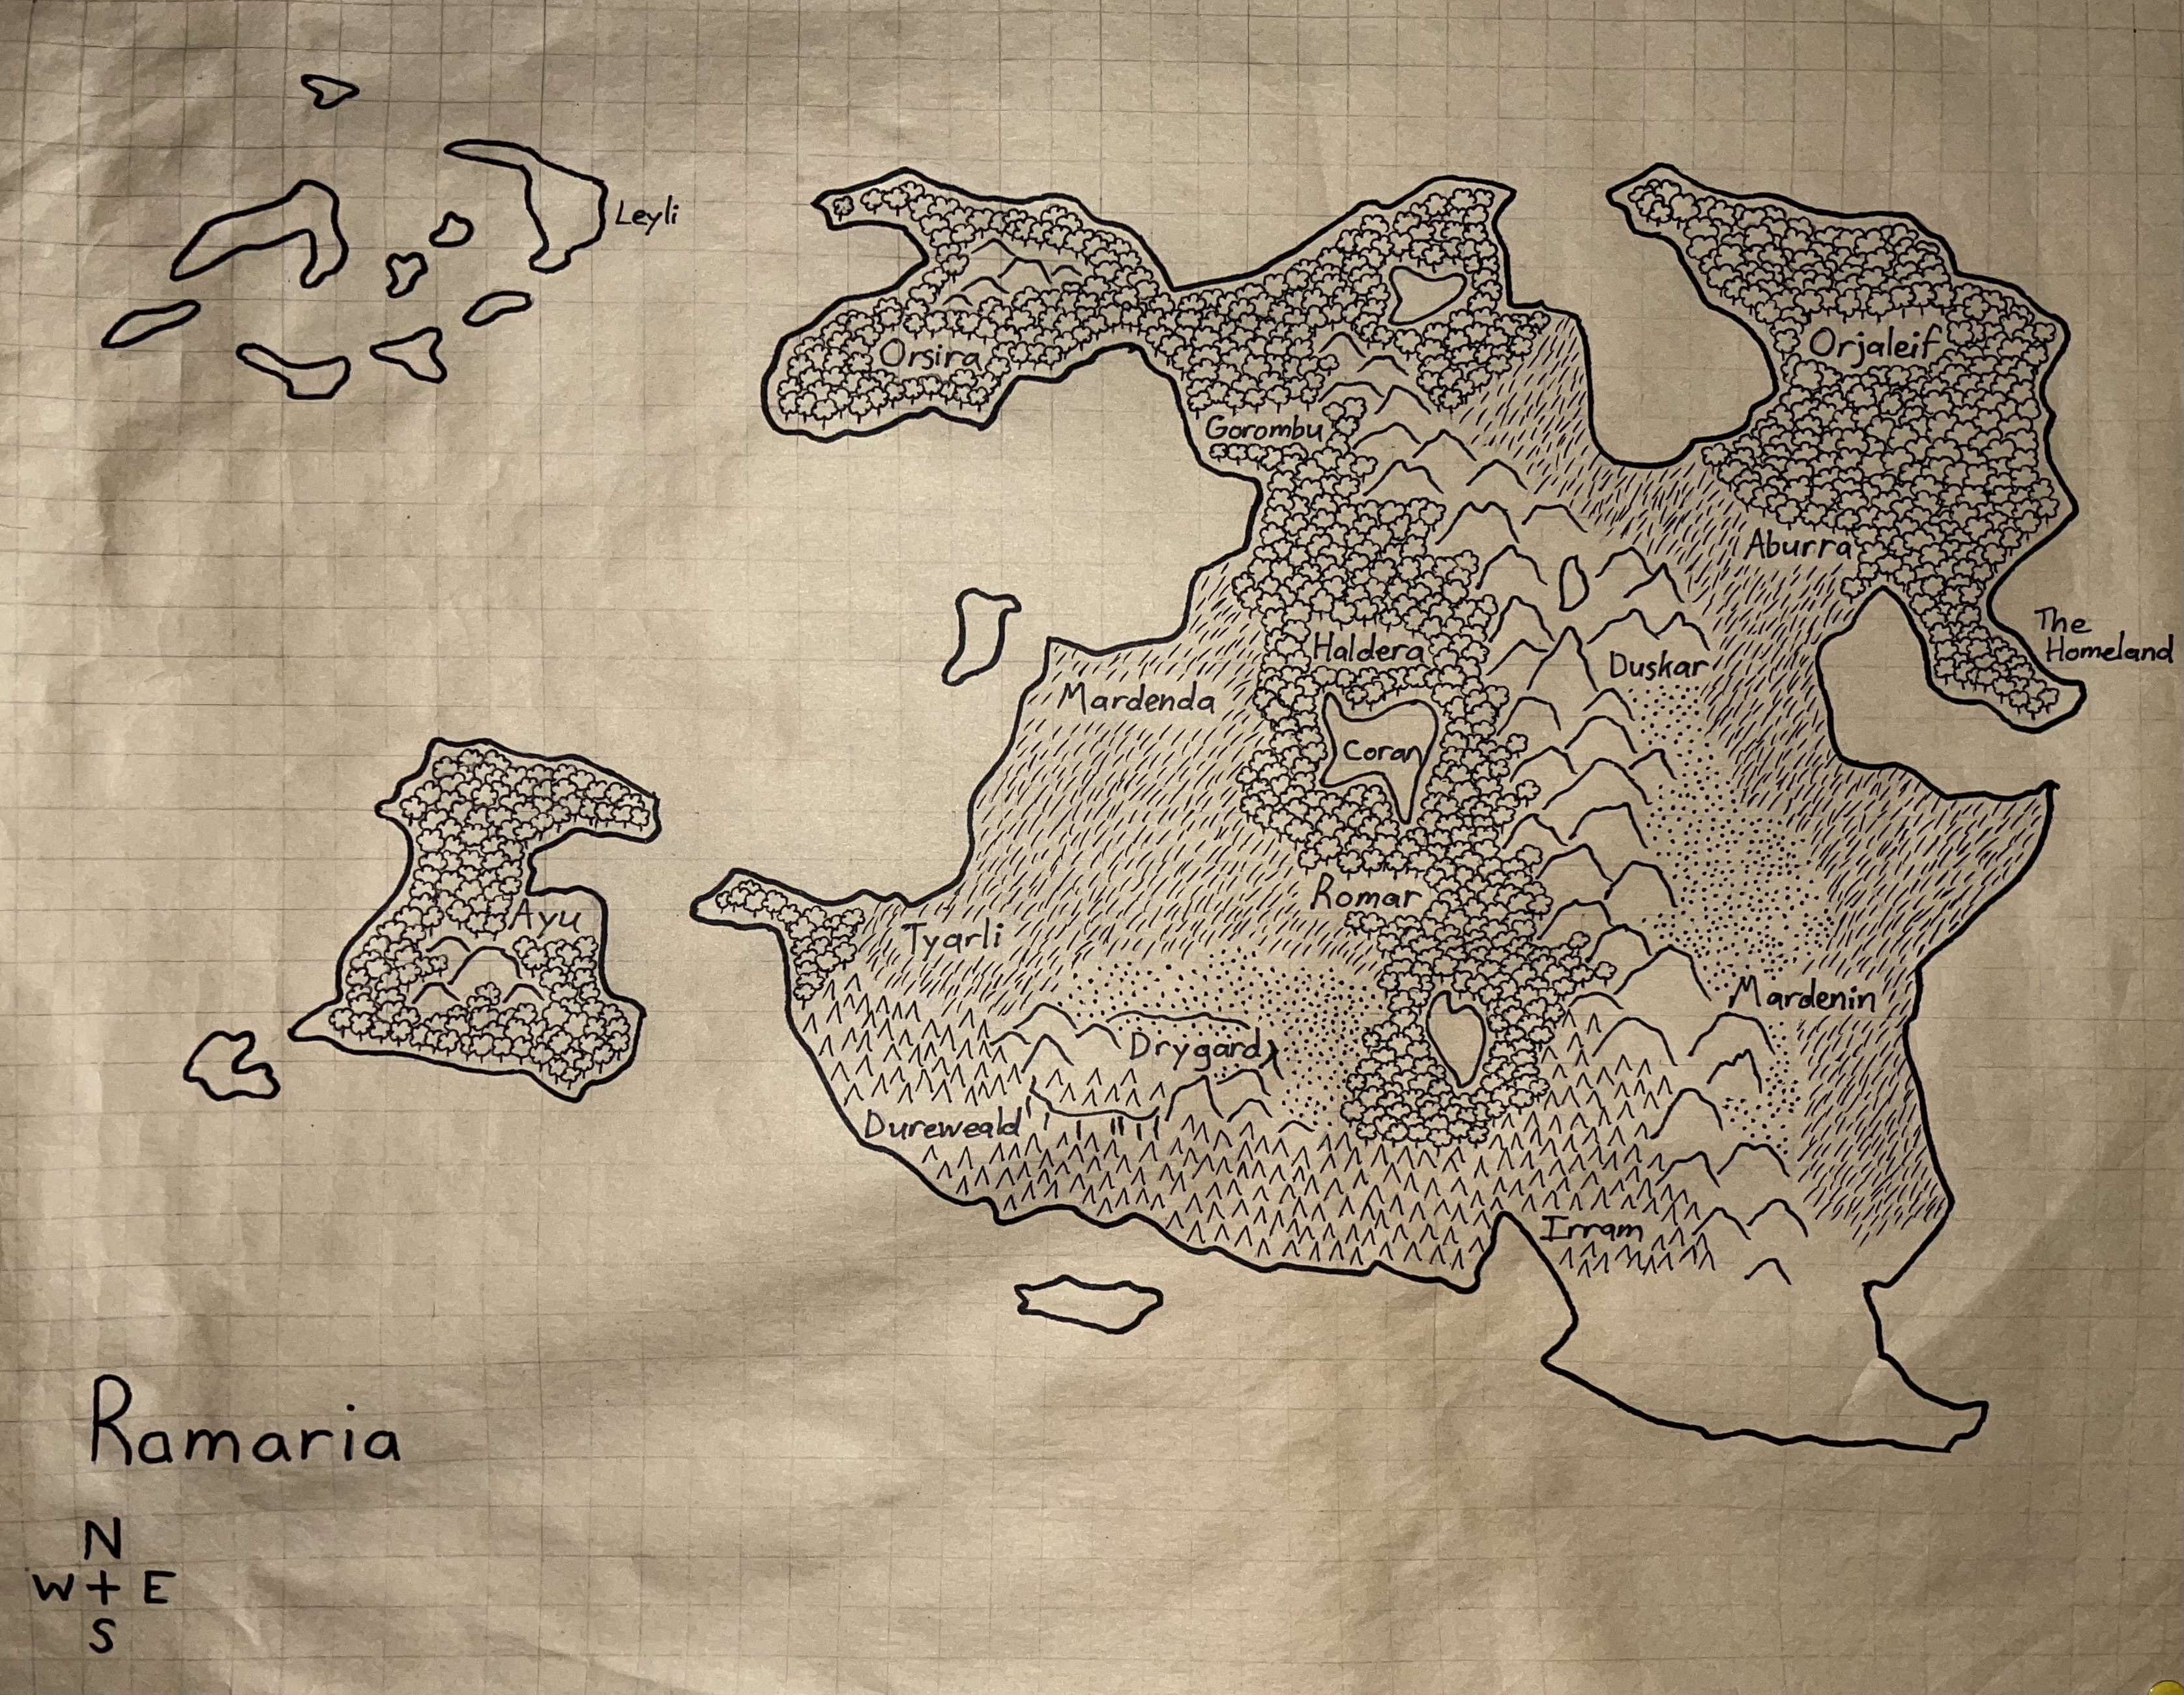 Leyli
Orsira
Orjaleif
Gorombu
Aburra
The
Homeland
Haldera
Duskar
Mardenda
Coran
Romar
Ayu
Tyarli
Mardenin
Drygard
Dureweald
Irram
Ramaria
N
W + E
S